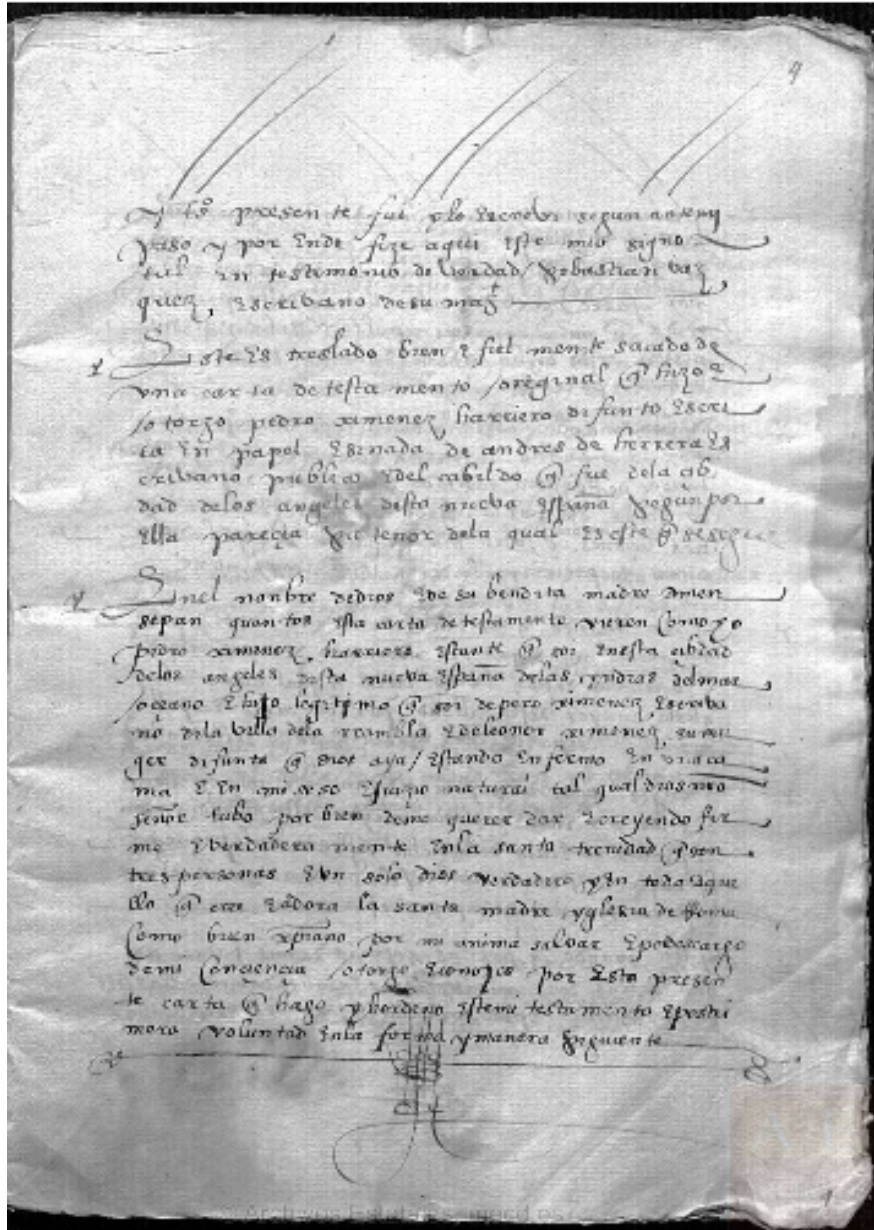 9
presente fui e lo escrevi segun ante my
paso y por ende fize aqui este mio signo
tal en testimonio de verdad / sebastian vaz
quez, escribano de su magt
Este es treslado bien e fiel mente sacado de
vna carta de testamento / oreginal q hizo e
/ otorgo pedro ximenez harriero difunto escri
ta en papel e sinada de andres de herrera es
crivano publico e del cabildo q fue de la cib
dad de los angeles desta nueba españa segun por
ella parecia su tenor de la qual es este q se sigue
Enel nonbre de dios e de su bendita madre amen
sepan quantos esta carta de testamento vieren como yo
pedro ximenez harriero estante q soi en esta cibdad
delos angeles desta nueba españa delas yndias del mar
/ oceano e hijo legitimo q soi de pero ximenez escriba
no dela villa dela rambla e de leonor ximenez su mu
ger difunta q dios aya / estando enfermo en la ca
ma e en mi seso e juizio natural tal qual dios nro
señor tubo por bien deme querer dar e creyendo fir
me e verdadera mente enla santa trenidad q son
tres personas e vn solo dios verdadero y en todo aque
llo q cree e adora la santa madre yglesia de Roma
como buen xpiano por mi anima salvar e por descargo
de mi conciencia / otorgo e conozco por esta presen
te carta q hago y hordeno este mi testamento e postri
mera voluntad enla forma y manera siguiente